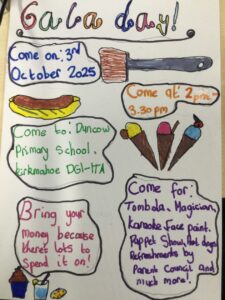 Gala day!
Come on: 3rd
October 2025
Come at: 2pm-
3.30pm
Come to: Duncow
Primary School.
Kirkmahoe DG1-1TA
Bring your
money because
there's lots to
spend it on!
Come for:
Tombola. Magician,
Karaoke. Face paint.
Puppet Show, Hot dogs,
Refreshments by
Parent Council and
much more!